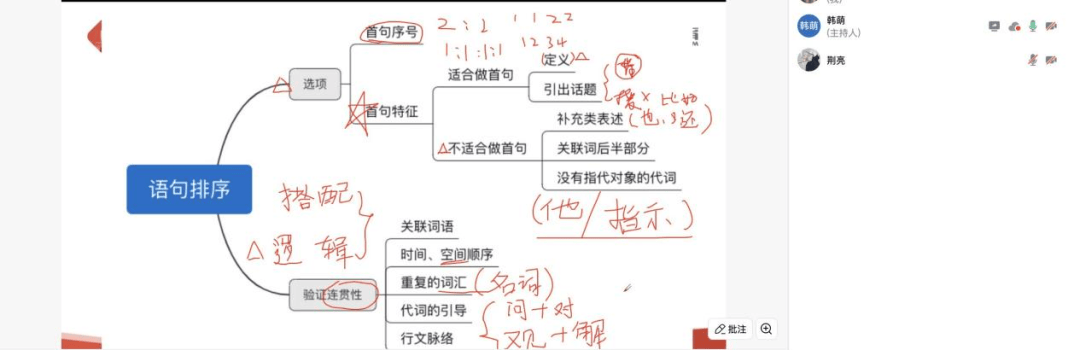 首句序号
2:2
1 1 2 2
1:1:1:1
1 2 3 4
选项
适合做首句
(定义)
引出话题
首句特征
比如
补充类表述
(也、还)
不适合做首句
关联词后半部分
没有指代对象的代词
(他/指示)
语句排序
搭配
逻辑
关联词语
时间、空间顺序
重复的词汇
(名词)
验证连贯性
代词的引导
问+对
行文脉络
观+解
批注
韩萌
韩萌
(主持人)
荆亮